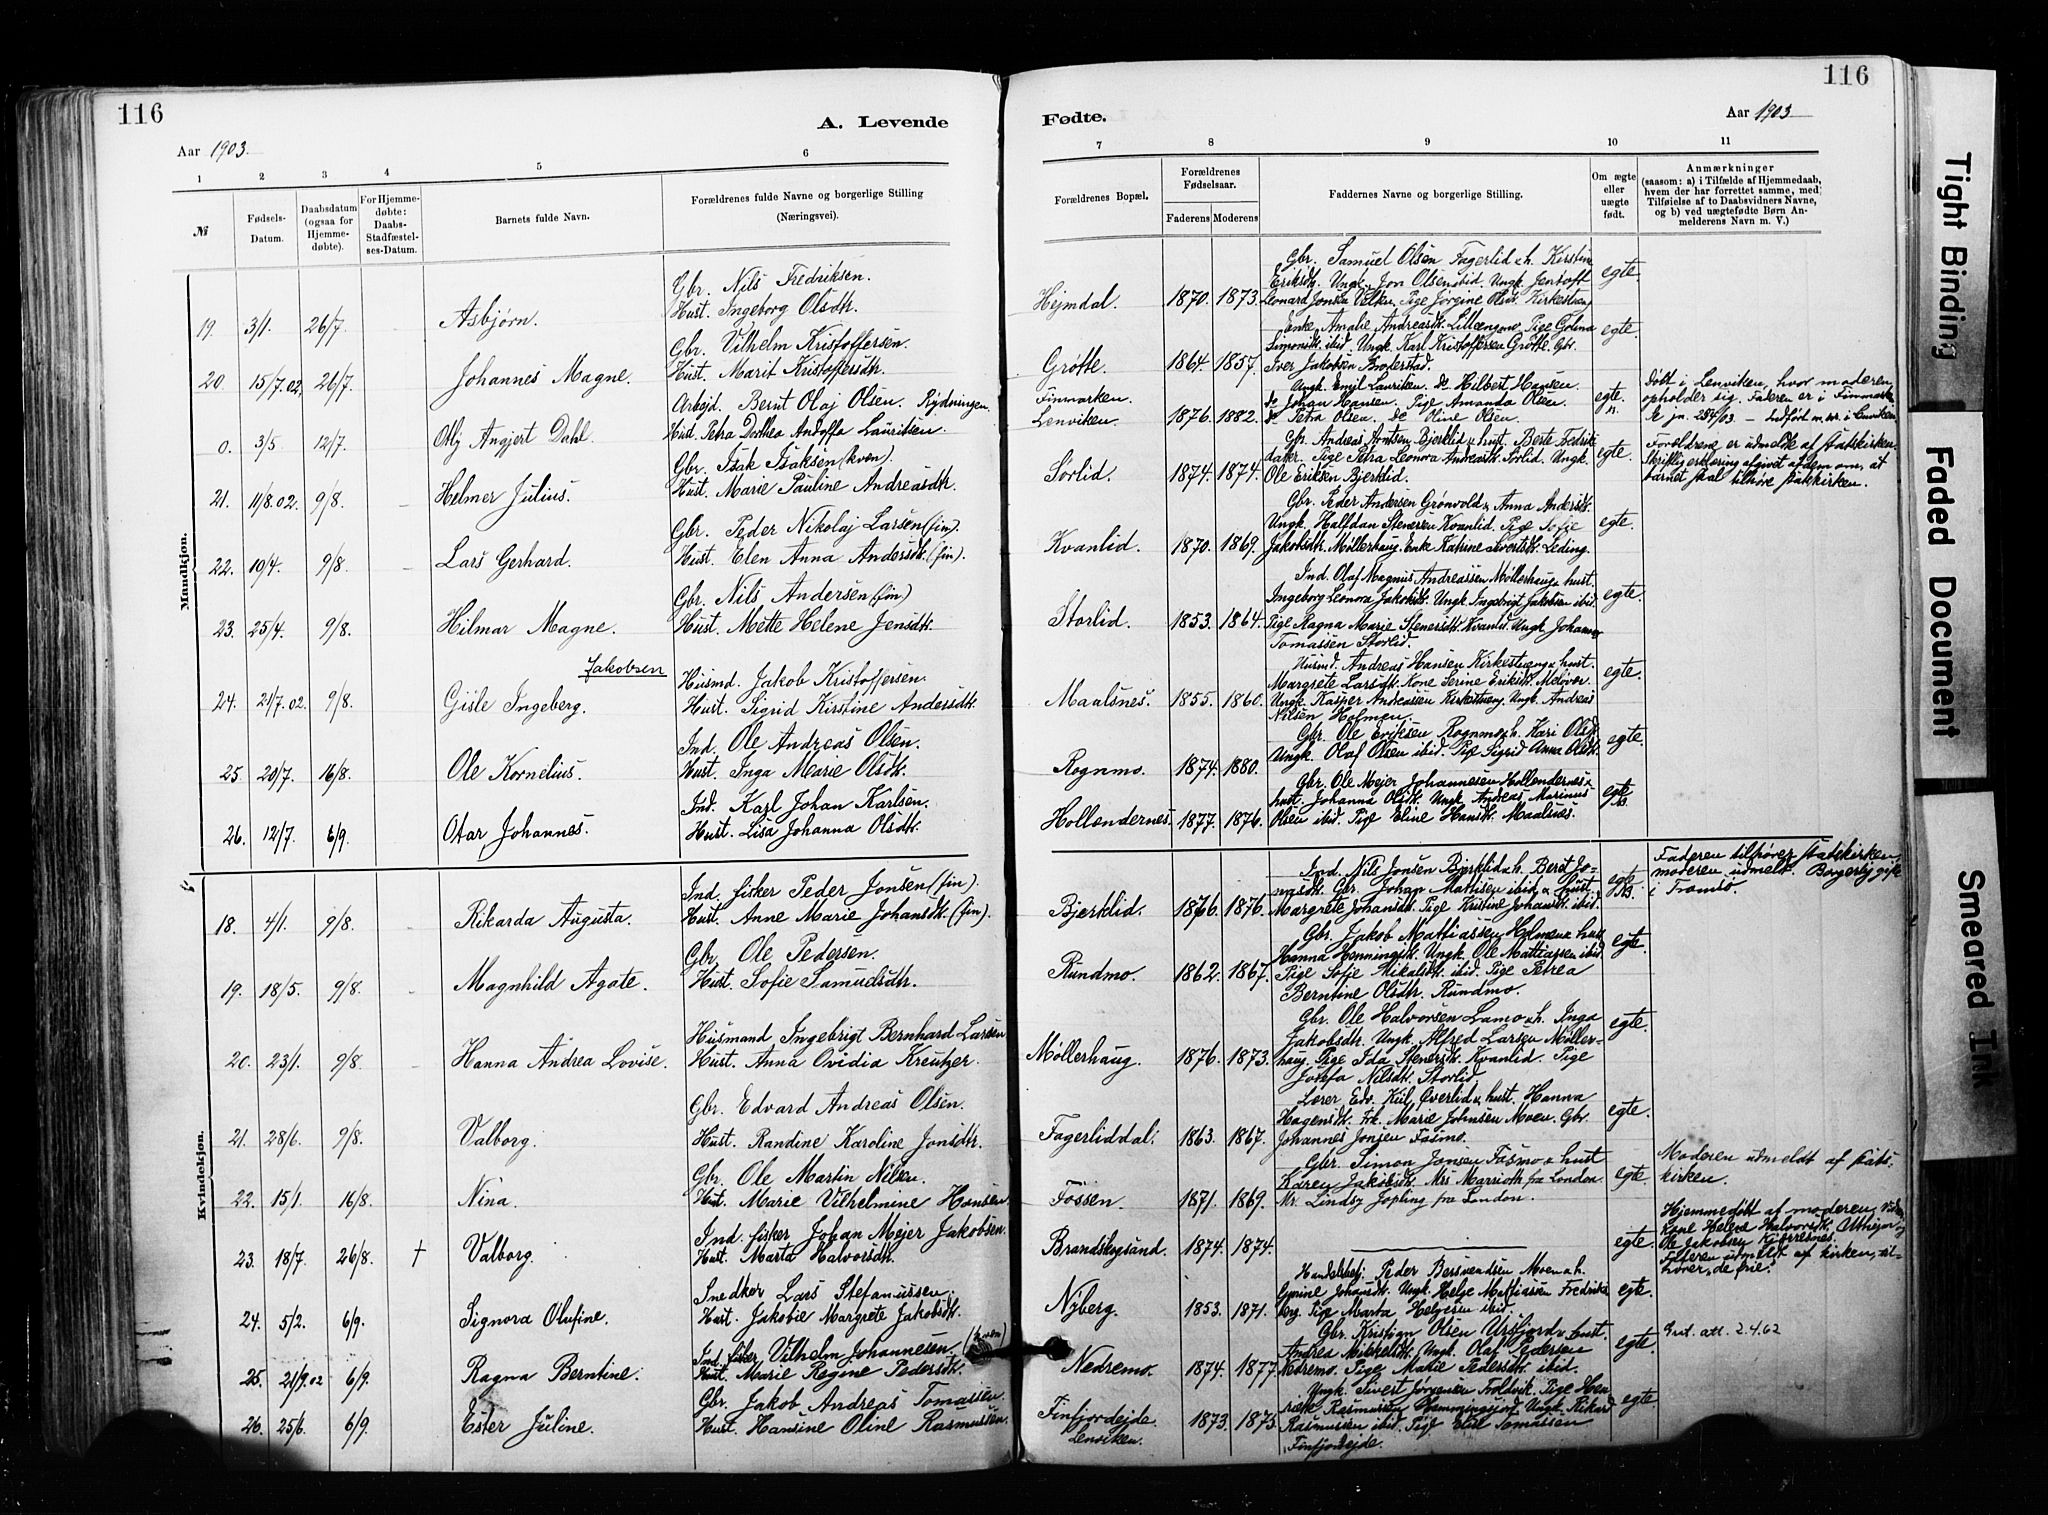 116
A. Levende
Aar 1903.
1 2 3 4 5 6
№
Fødsels-Datum.
Daabsdatum (ogsaa for Hjemmedøbte).
For Hjemmedøbte: Daabs-Stadfæstelses-Datum.
Barnets fulde Navn.
Forældrenes fulde Navne og borgerlige Stilling (Næringsvei).
Mandkjøn.
Gbr. Nils Fredriksen.
19. 3/1. 26/7. Asbjørn. Hust. Ingeborg Olsdtr.
Gbr. Vilhelm Kristoffersen.
20. 15/7.02. 26/7. Johannes Magne. Hust. Marit Kristoffersdtr.
Arbejd. Bernt Olaj Olsen. Rydningen.
0. 3/5. 12/7. Olly Angjert Dahl. Hust. Petra Dorthea Andoffa Lauritsen.
Gbr. Isak Isaksen (kven).
21. 11/8.02. 9/8. Helmer Julius. Hust. Marie Pauline Andreasdtr.
Gbr. Peder Nikolaj Larsen (fin).
22. 10/4. 9/8. Lars Gerhard. Hust. Elen Anna Andersdtr. (fin).
Gbr. Nils Andersen (fin)
23. 25/4. 9/8. Hilmar Magne. Hust. Mette Helene Jensdtr.
Jakobsen
Husmd. Jakob Kristoffersen.
24. 21/7.02. 9/8. Gisle Ingeberg. Hust. Sigrid Kirstine Andersdtr.
Ind. Ole Andreas Olsen.
25. 20/7. 16/8. Ole Kornelius. Hust. Inga Marie Olsdtr.
Ind. Karl Johan Karlsen.
26. 12/7. 6/9. Otar Johannes. Hust. Lisa Johanna Olsdtr.
Kvindekjøn.
Ind. fisker Peder Jonsen (fin).
18. 4/1. 9/8. Rikarda Augusta. Hust. Anne Marie Johansdtr. (fin).
Gbr. Ole Pedersen.
19. 18/5. 9/8. Magnhild Agate. Hust. Sofie Samuelsdtr.
Husmand Ingebrigt Bernhard Larsen
20. 23/1. 9/8. Hanna Andrea Lovise. Hust. Anna Ovidia Kreutzer.
Gbr. Edvard Andreas Olsen.
21. 28/6. 9/8. Valborg. Hust. Randine Karoline Jonsdtr.
Gbr. Ole Martin Nilsen.
22. 15/1. 16/8. Nina. Hust. Marie Vilhelmine Hansen.
Ind. fisker Johan Mejer Jakobsen.
23. 18/7. 26/8. † Valborg. Hust. Marta Halvorsdtr.
Snedker Lars Stefanussen.
24. 5/2. 6/9. Signora Olufine. Hust. Jakobie Margrete Jakobsdtr.
Ind. fisker Vilhelm Johannesen. (kven)
25. 21/9.02 6/9. Ragna Berntine. Hust. Marie Regine Pedersdtr.
Gbr. Jakob Andreas Tomassen.
26. 25/6. 6/9. Ester Juline. Hust. Hansine Oline Rasmussen.
116
Fødte.
Aar 1903
7 8 9 10 11
Forældrenes Bopæl.
Forældrenes Fødselsaar.
Faderens Moderens
Faddernes Navne og borgerlige Stilling.
Om ægte eller uægte født.
Anmærkninger
(saasom: a) i Tilfælde af Hjemmedaab, hvem der har forrettet samme, med Tilføielse af to Daabsvidners Navne, og b) ved uægtefødte Børn Anmelderens Navn m. V.)
Gbr. Samuel Olsen Fagerlid & h. Kirstine
Eriksdtr. Ungk. Jon Olsen ibid. Ungk. Jentoft
Hejmdal. 1870. 1873. Leonard Jonsen Vollen. Pige Jørgine Olsd. Kirkestuen. egte.
Enke Amalie Andreasdtr. Lillengmo. Pige Golina
Simonsdtr. ibid. Ungk. Karl Kristoffersen Grøtte. Gbr.
Grøtte. 1864. 1857. Iver Jakobsen Broderstad. egte.
Ungk. Emil Lauritsen. do Hilbert Hansen.
Finmarken. do Johan Hansen. Pige Amanda Olsen.
Lenviken. 1876. 1882. do Petra Olsen. do Oline Olsen. egte.
Døbt i Lenviken, hvor moderen
opholder sig. Faderen er i Finmarken
Gbr. Andreas Arntsen Bjerklid & hust. Berte Fredrik-
datter. Pige Petra Leonora Andreasdtr. Sørlid. Ungk.
Sørlid. 1874. 1874. Ole Eriksen Bjerklid. egte.
Forældrene er udmeldt af statskirken.
Skriftlig erklæring afgivet af dem om, at
barnet skal tilhøre statskirken.
Gbr. Peder Andersen Grønvold & Anna Andersdtr.
Ungk. Halfdan Stenersen Kvanlid. Pige Sofie
Kvanlid. 1870. 1869. Jakobsdtr. Møllerhaug. Enke Katrine Sivertsdtr. Leding. egte.
Ind. Olaf Magnus Andreassen Møllerhaug & hust.
Ingeborg Leonora Jakobsdtr. Ungk. Ingebrigt Jakobsen ibid.
Storlid. 1853. 1864. Pige Ragna Marie Stenersdtr. Kvanlid. Ungk. Johan
Tomassen Storlid. egte.
Husmd. Andreas Hansen Kirkestuen & hust.
Margrete Larsdtr. Kone Serine Eriksdtr. Meløver.
Maalsnes. 1855. 1860. Ungk. Kasper Andreassen Kirkestueng. Ungk. Andreas
Nilsen Holmen. egte.
Gbr. Ole Eriksen Rognmo & h. Kari Olsd.
Ungk. Olaf Olsen ibid. Pige Sigrid Anna Olsdtr.
Rognmo. 1874. 1880. egte.
Gbr. Ole Mejer Johannesen Hollendernes &
hust. Johanna Olsdtr. Ungk. Andreas Marinus
Hollendernes. 1877. 1876. Olsen ibid. Pige Eline Hansdtr. Maalsnes. egte
Ind. Nils Jonsen Bjerklid & h. Berit Jo-
nasdtr. Gbr. Johan Mattisen ibid. & hust.
Bjerklid. 1876. 1876. Margrete Johansdtr. Pige Kristine Johansdtr. ibid. egte
Faderen tilhører statskirken,
moderen udmeldt. Borgerlig gift
i Tromsø
Gbr. Jakob Mattiassen Holmen & hust
Hanna Henningsdtr. Ungk. Ole Mattiassen ibid
Rundmo. 1862. 1867. Pige Sofie Mikalsdtr. ibid. Pige Petrea
Berntine Olsdtr. Rundmo. egte.
Gbr. Ole Halvorsen Lamo & h. Inga
Jakobsdtr. Ungk. Alfred Larsen Møller-
Møllerhaug. 1876. 1873. haug. Pige Ida Stenersdtr. Kvanlid. Pige
Josefa Nilsdtr. Storlid. egte.
Lærer Edv. Kiil Øverlid & hust. Hanna
Hagensdtr. Frk. Marie Johnsen Moen. Gbr.
Fagerliddal. 1863. 1867. Johannes Jonsen Fosmo. egte.
Gbr. Simon Jonsen Fosmo & hust
Karen Jakobsdtr. Mrs Marrioth fra London.
Fossen. 1871. 1869. Mr. Lindsy Jopling fra London. egte.
Moderen udmeldt af stats-
kirken.
Brandskogsand. 1874. 1874. egte.
Hjemmedøbt af moderen. Vidner
kone Helene Halvorsdtr. &
Ole Jakobsen
Faderen udmeldt af kirken, til-
hører "de frie."
Handelsbetj. Peder Bersvendsen Moen & h.
Gurine Johansdtr. Ungk. Helge Mattiassen Fredriks
Nyberg. 1853. 1871. berg. Pige Marta Helgesen ibid. egte.
Gbr. Kristian Olsen Ursfjord & hust.
Andrea Mikkelsdtr. Ungk. Olaf Pedersen
Nedremo. 1874. 1877. Nedremo. Pige Marie Pedersdtr. ibid. egte.
Grat. att. 2.4.62
Ungk. Sivert Jørgensen Troldvik. Pige Hen-
rikke Rasmussen Hemmingsjord. Ungk. Rikard
Finfjordejde. 1873. 1873. Rasmussen ibid. Pige Elise Tomassen
Lenviken. Finfjordejde. egte.
Tight Binding
Faded Document
Smeared Ink